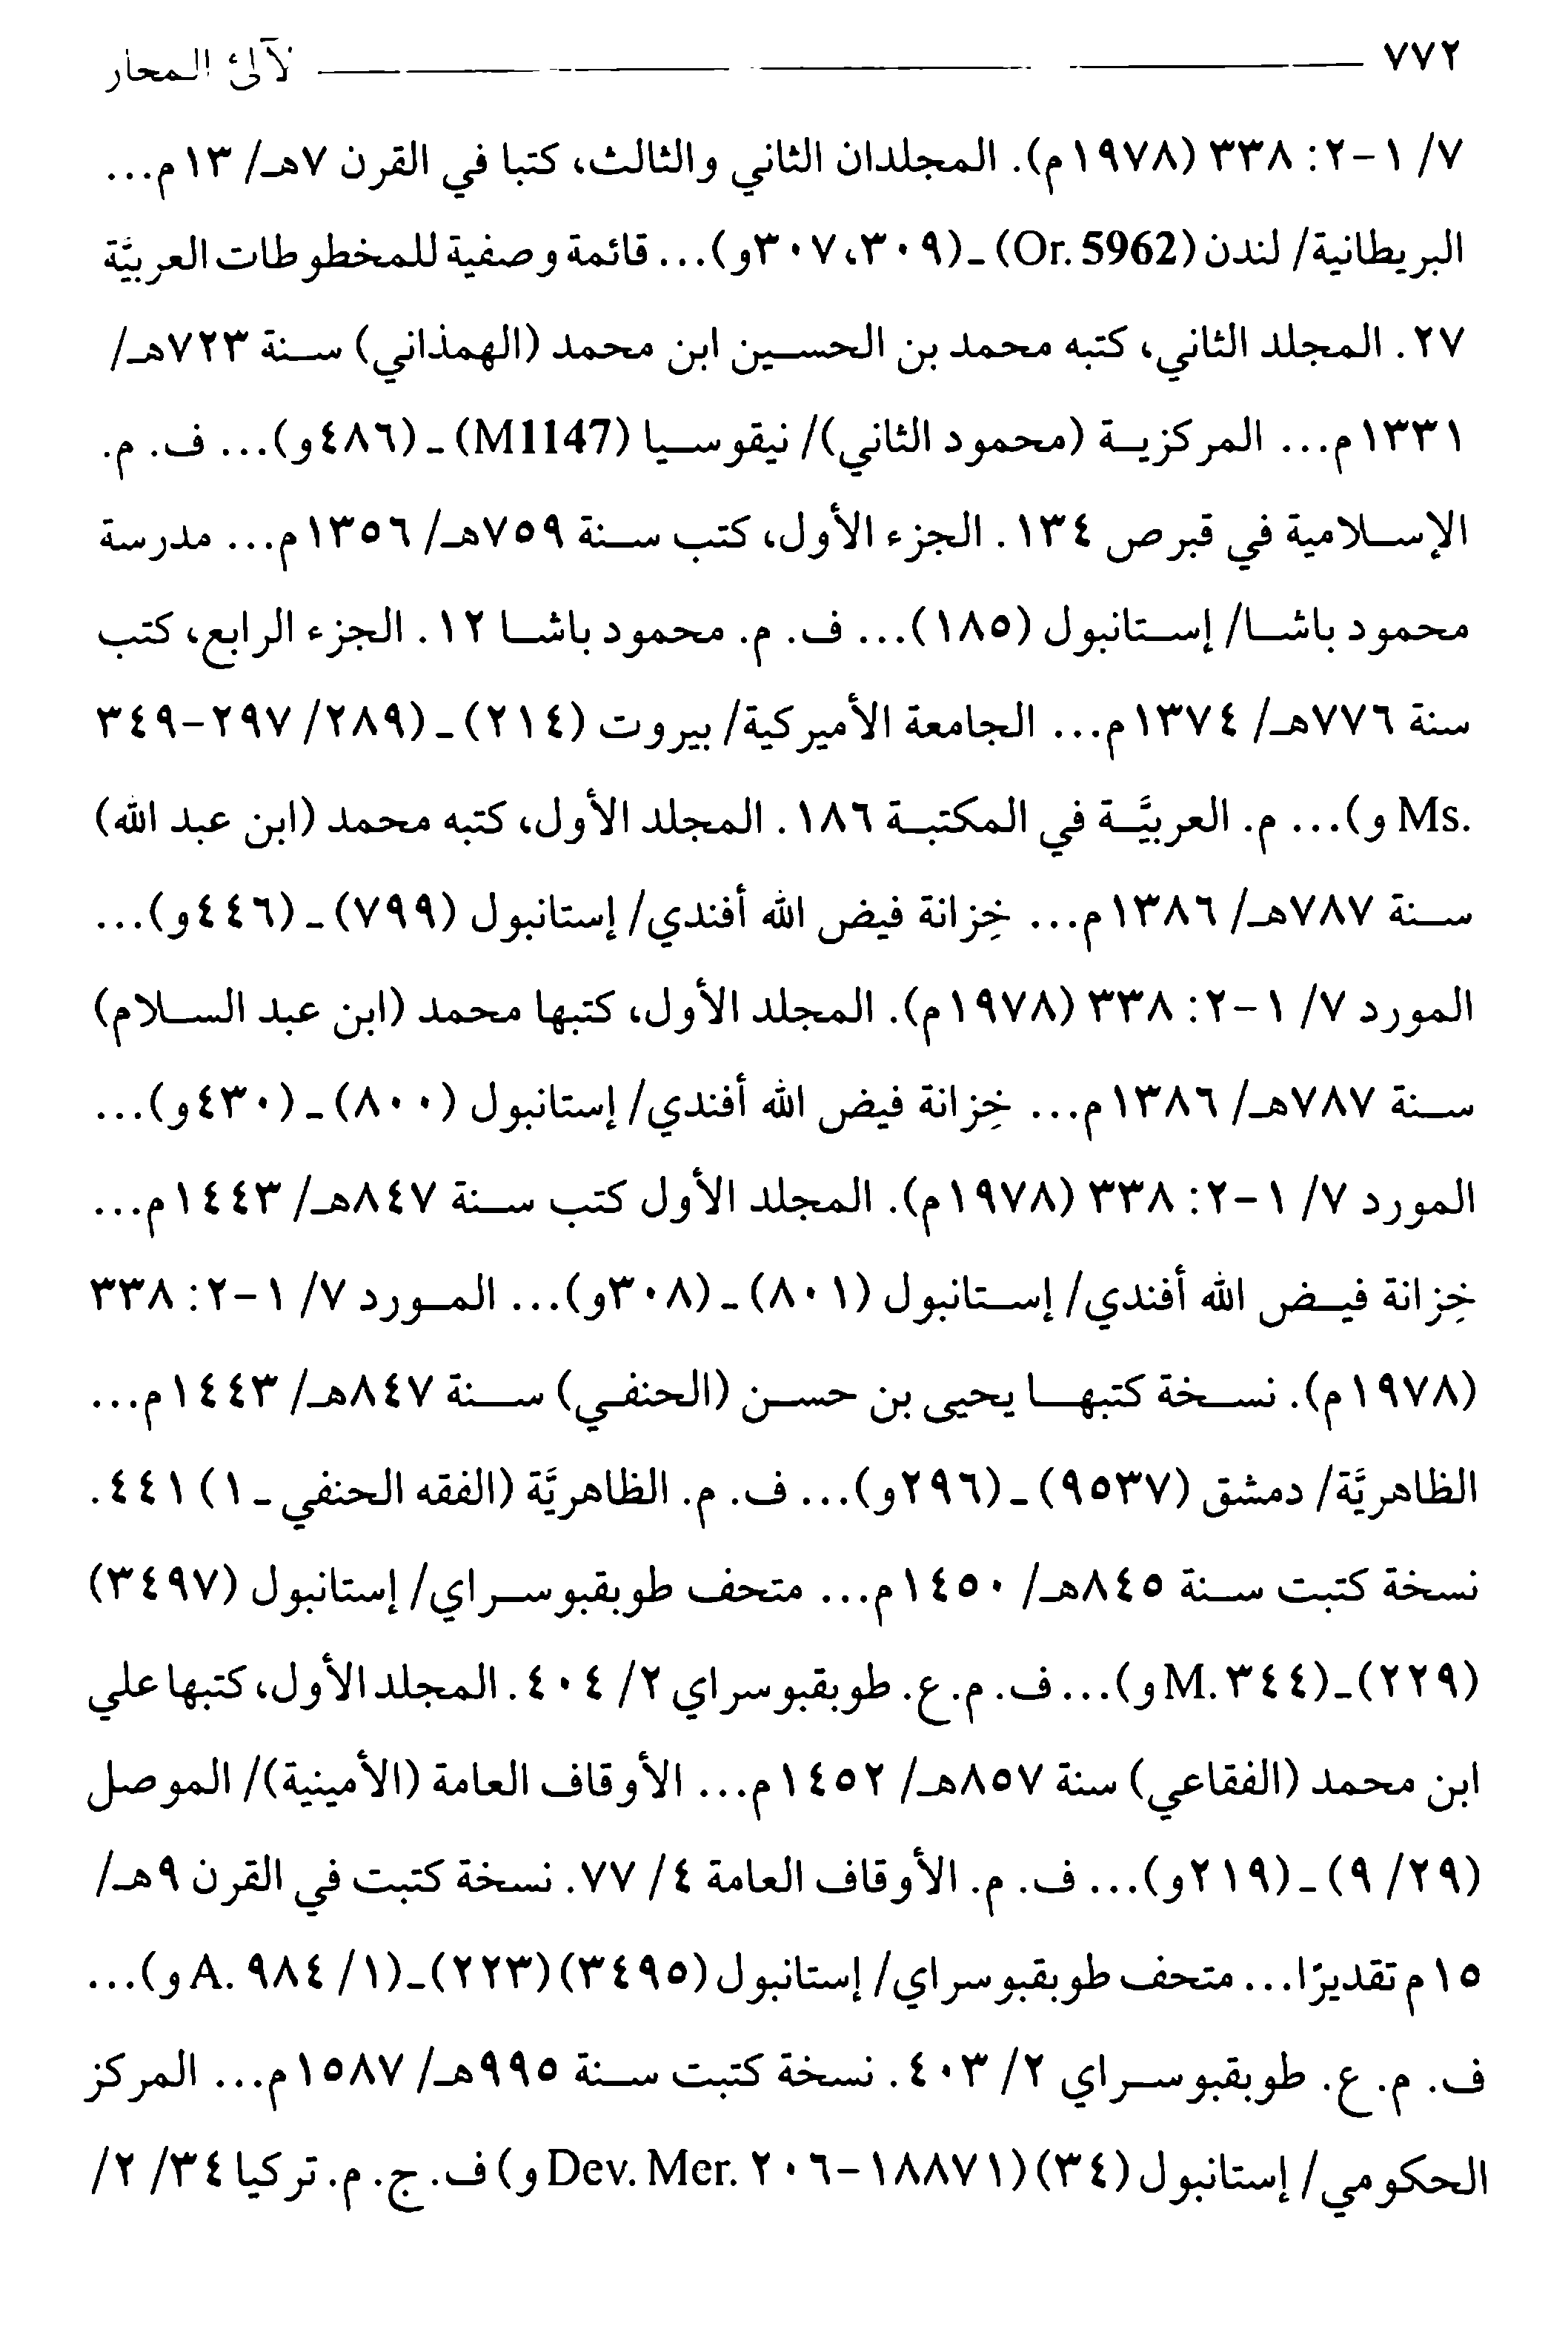 ٧٧٢ لآلئ المحار
٧/ ١-٢: ٣٣٨ (١٩٧٨م). المجلدان الثاني والثالث، كتبا في القرن ٧هـ/ ١٣م...
البريطانية/ لندن (Or. 5962) ـ (٣٠٩، ٣٠٧و)... قائمة وصفية للمخطوطات العربيَّة
٢٧. المجلد الثاني، كتبه محمد بن الحسين ابن محمد (الهمذاني) سنة ٧٢٣هـ/
١٣٣١م... المركزية (محمود الثاني)/ نيقوسيا (M1147) ـ (٤٨٦و)... ف. م.
الإسلامية في قبرص ١٣٤. الجزء الأول، كتب سنة ٧٥٩هـ/ ١٣٥٦م... مدرسة
محمود باشا/ إستانبول (١٨٥)... ف. م. محمود باشا ١٢. الجزء الرابع، كتب
سنة ٧٧٦هـ/ ١٣٧٤م... الجامعة الأميركية/ بيروت (٢١٤) ـ (٢٨٩/ ٢٩٧-٣٤٩
Ms. و)... م. العربيَّة في المكتبة ١٨٦. المجلد الأول، كتبه محمد (ابن عبد الله)
سنة ٧٨٧هـ/ ١٣٨٦م... خِزانة فيض الله أفندي/ إستانبول (٧٩٩) ـ (٤٤٦و)...
المورد ٧/ ١-٢: ٣٣٨ (١٩٧٨م). المجلد الأول، كتبها محمد (ابن عبد السلام)
سنة ٧٨٧هـ/ ١٣٨٦م... خِزانة فيض الله أفندي/ إستانبول (٨٠٠) ـ (٤٣٠و)...
المورد ٧/ ١-٢: ٣٣٨ (١٩٧٨م). المجلد الأول كتب سنة ٨٤٧هـ/ ١٤٤٣م...
خِزانة فيض الله أفندي/ إستانبول (٨٠١) ـ (٣٠٨و)... المورد ٧/ ١-٢: ٣٣٨
(١٩٧٨م). نسخة كتبها يحيى بن حسن (الحنفي) سنة ٨٤٧هـ/ ١٤٤٣م...
الظاهريَّة/ دمشق (٩٥٣٧) ـ (٢٩٦و)... ف. م. الظاهريَّة (الفقه الحنفي ـ ١) ٤٤١.
نسخة كتبت سنة ٨٤٥هـ/ ١٤٥٠م... متحف طوبقبوسراي/ إستانبول (٣٤٩٧)
(٢٢٩) ـ (M. ٣٤٤و)... ف. م. ع. طوبقبوسراي ٢/ ٤٠٤. المجلد الأول، كتبها علي
ابن محمد (الفقاعي) سنة ٨٥٧هـ/ ١٤٥٢م... الأوقاف العامة (الأمينية)/ الموصل
(٢٩/ ٩) ـ (٢١٩و)... ف. م. الأوقاف العامة ٤/ ٧٧. نسخة كتبت في القرن ٩هـ/
١٥م تقديرًا... متحف طوبقبوسراي/ إستانبول (٣٤٩٥) (٢٢٣) ـ (١/ ٩٨٤ A. و)...
ف. م. ع. طوبقبوسراي ٢/ ٤٠٣. نسخة كتبت سنة ٩٩٥هـ/ ١٥٨٧م... المركز
الحكومي/ إستانبول (٣٤) (١٨٨٧١-٢٠٦ Dev. Mer. و) ف. ج. م. تركيا ٣٤/ ٢/